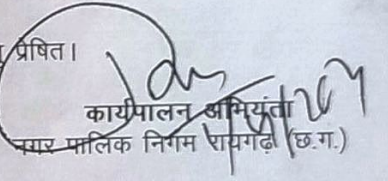 प्रेषित।
कार्यपालन अभियंता
नगर पालिक निगम रायगढ़ (छ.ग.)